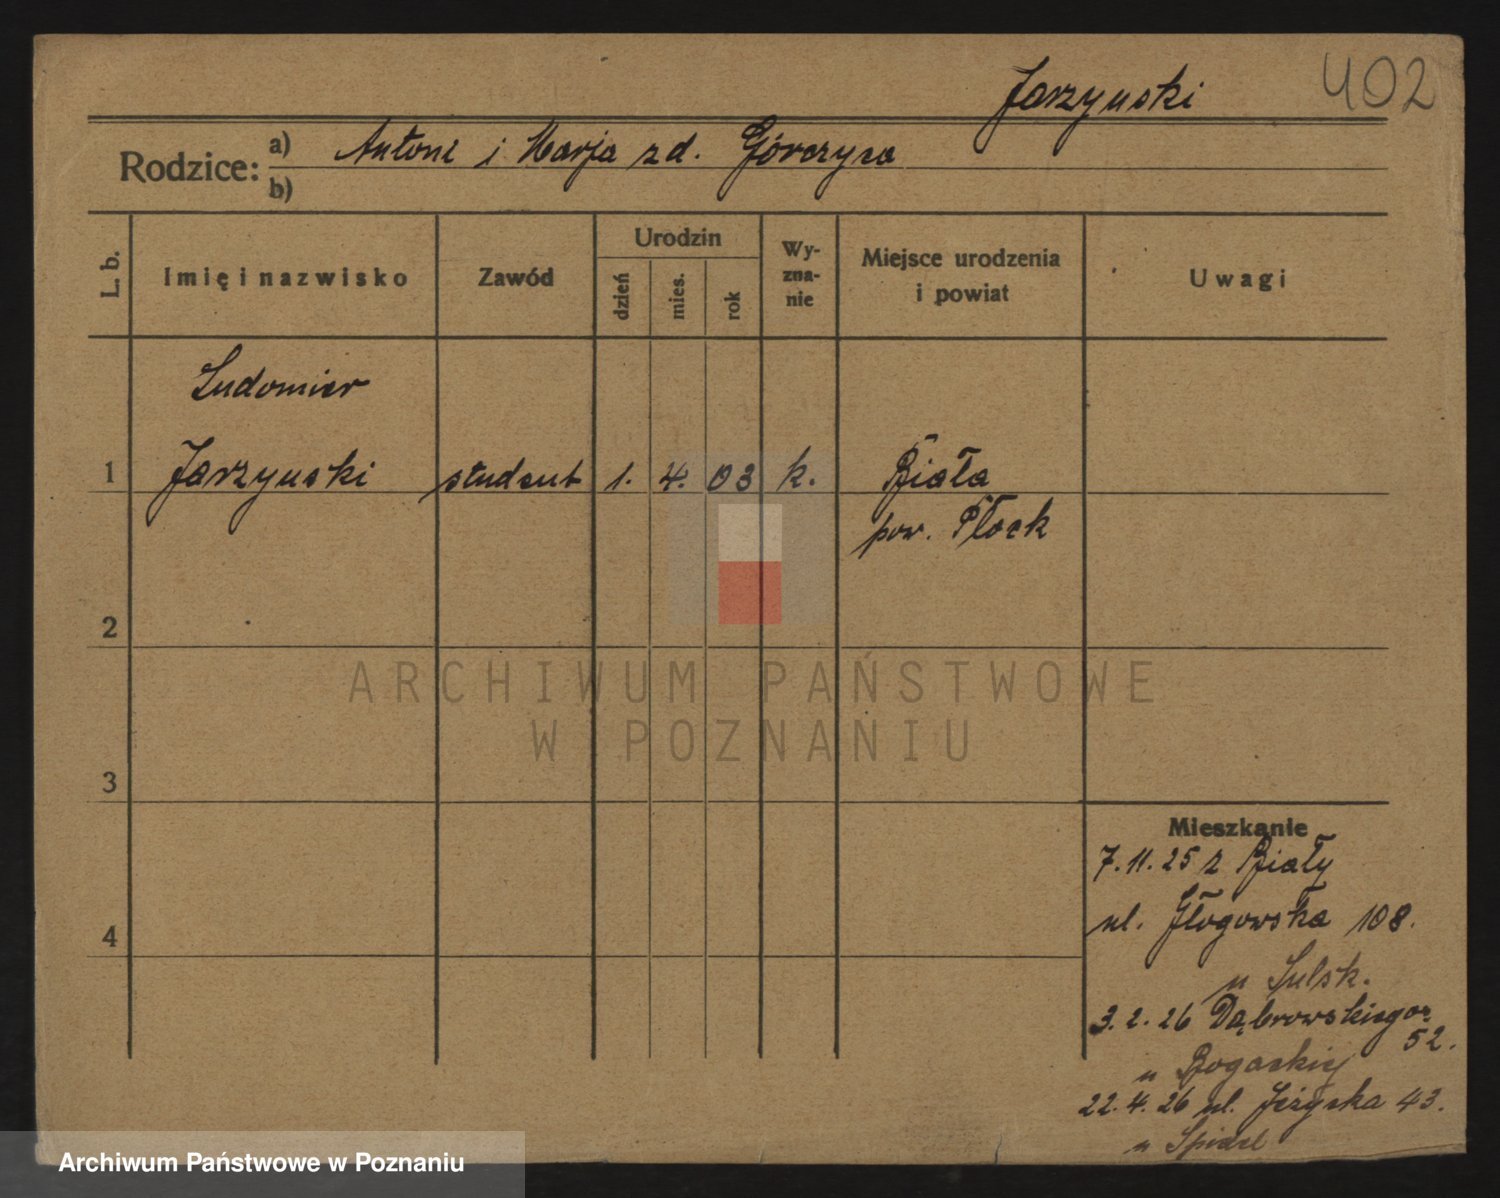 Jarzynski 402
Rodzice: a) Antoni i Marja zd. Górczyca
b)
L. b. Imię i nazwisko Zawód Urodzin dzień mies. rok Wyznanie Miejsce urodzenia i powiat Uwagi
Ludomier
1 Jarzynski student 1. 4. 03 k. Biała
pow. Płock
2
ARCHIWUM PAŃSTWOWE
W POZNANIU
3
Mieszkanie
7.11.25 z Biały
4 ul. Głogowska 108.
u Sulsk.
3.2.26 Dąbrowskiego
52.
u
22.4.26 ul. Jeżycka 43.
u Spidel
Archiwum Państwowe w Poznaniu